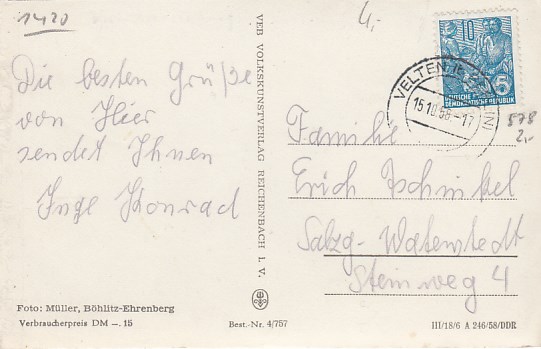 1420
4,-
Die besten Grüße
von Hier
sendet Ihnen
Inge Konrad
Foto: Müller, Böhlitz-Ehrenberg
Verbraucherpreis DM -. 15
VEB VOLKSKUNSTVERLAG REICHENBACH I. V.
Best.-Nr. 4/757
10
DEUTSCHE
DEMOKRATISCHE REPUBLIK
5
VELTEN
15.10.58-17
578
2,-
Familie
Erich Tschinkel
Salzg-Watenstedt
Steinweg 4
III/18/6 A 246/58/DDR